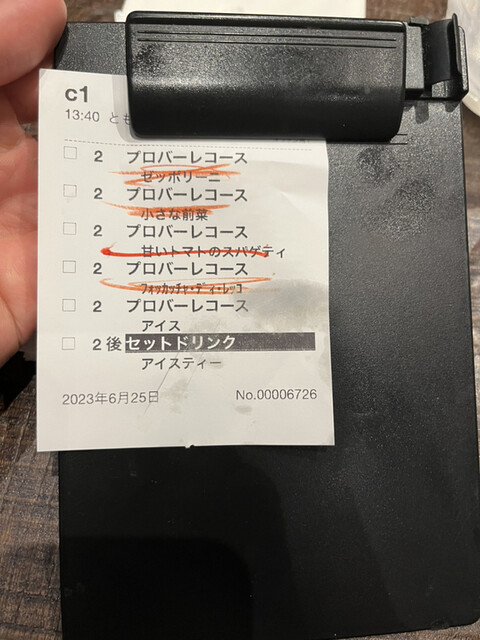 c1
13:40 とも
2 プロバーレコース
ゼッポリーニ
2 プロバーレコース
小さな前菜
2 プロバーレコース
甘いトマトのスパゲティ
2 プロバーレコース
フォカッチャ・ディ・レッコ
2 プロバーレコース
アイス
2 後 セットドリンク
アイスティー
2023年6月25日 No.00006726